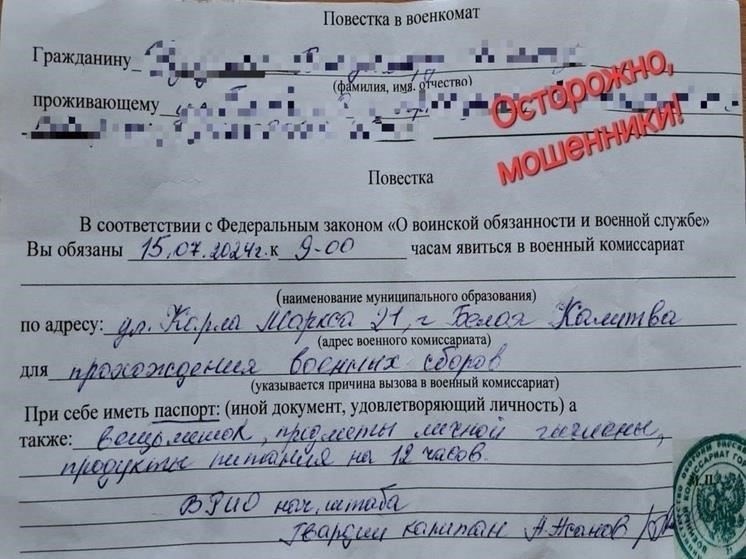 Повестка в военкомат
Гражданину
(фамилия, имя, отчество)
Осторожно,
мошенники!
проживающему
Повестка
В соответствии с Федеральным законом «О воинской обязанности и военной службе»
Вы обязаны 15.07.2024г. к 9-00 часам явиться в военный комиссариат
(наименование муниципального образования)
по адресу: ул. Карла Маркса 21, г Белая Калитва
(адрес военного комиссариата)
для прохождения военных сборов
(указывается причина вызова в военный комиссариат)
При себе иметь паспорт: (иной документ, удовлетворяющий личность) а
также: вещьмешок, предметы личной гигиены,
продукты питания на 12 часов.
М.П.
ВРИО нач. штаба
Гвардии капитан